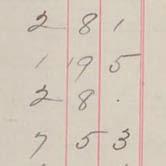 2 8 1
1 19 5
2 8 .
7 5 3